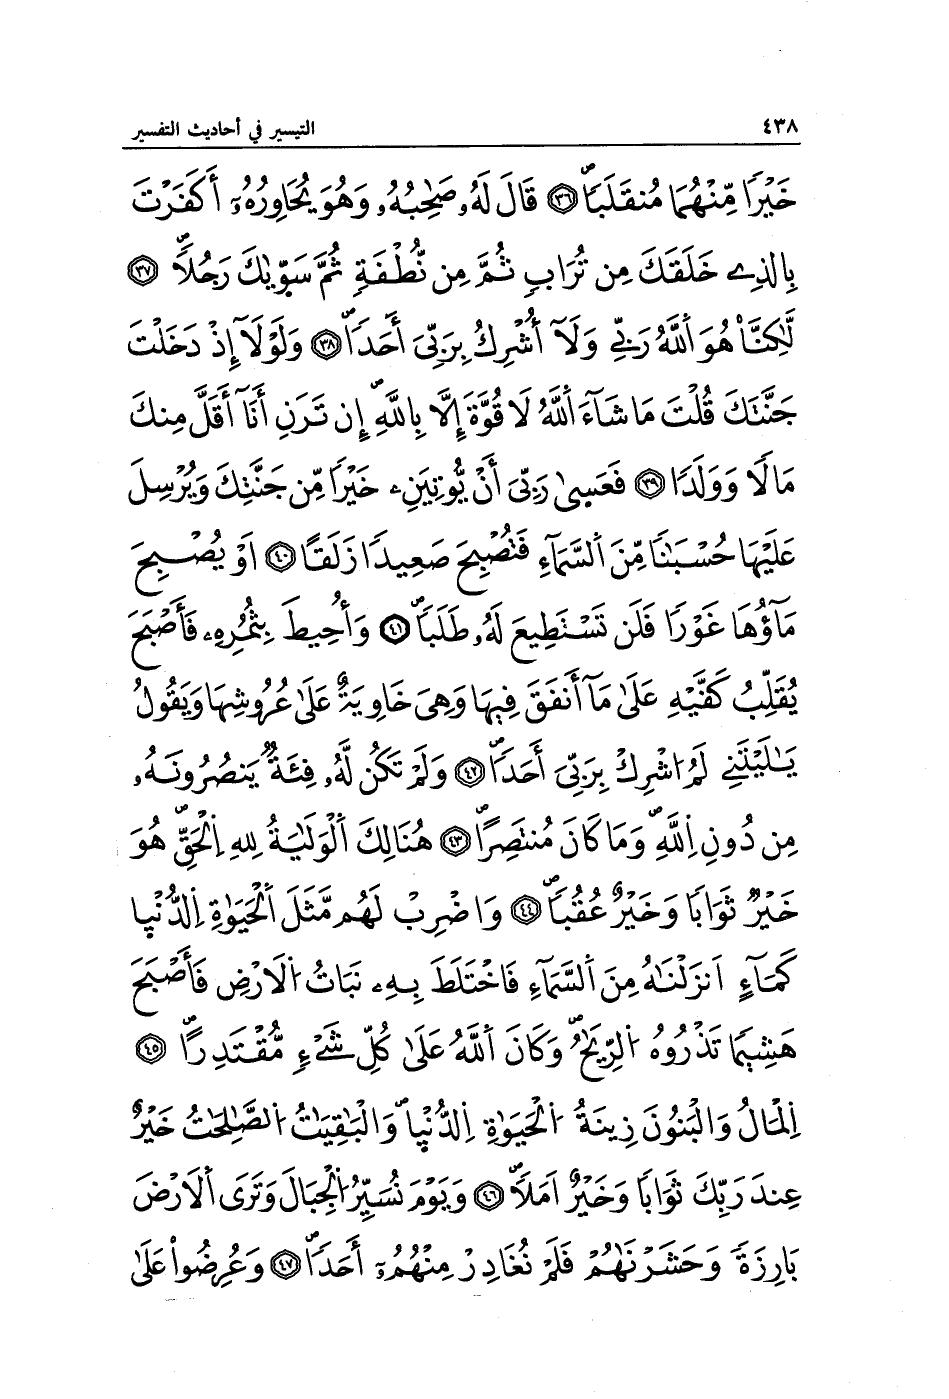 ٤٣٨ التيسير في أحاديث التفسير
خَيْرٗا مِّنْهُمَا مُنقَلَباٗۖ ٣٦ قَالَ لَهُۥ صَٰحِبُهُۥ وَهُوَ يُحَاوِرُهُۥٓ أَكَفَرْتَ
بِالذِے خَلَقَكَ مِن تُرَابٖ ثُمَّ مِن نُّطْفَةٖ ثُمَّ سَوّ۪يٰكَ رَجُلاٗۖ ٣٧
لَّٰكِنَّا۠ هُوَ اَ۬للَّهُ رَبِّے وَلَآ أُشْرِكُ بِرَبِّيَ أَحَداٗۖ ٣٨ وَلَوْلَآ إِذْ دَخَلْتَ
جَنَّتَكَ قُلْتَ مَا شَآءَ اَ۬للَّهُ لَا قُوَّةَ إِلَّا بِاللَّهِۖ إِن تَرَنِ أَنَآ أَقَلَّ مِنكَ
مَالٗا وَوَلَدٗا ٣٩ فَعَس۪يٰ رَبِّيَ أَنْ يُّوتِيَنِۦ خَيْرٗا مِّن جَنَّتِكَ وَيُرْسِلَ
عَلَيْهَا حُسْبَٰنٗا مِّنَ اَ۬لسَّمَآءِ فَتُصْبِحَ صَعِيدٗا زَلَقًا ٤٠ اَوْ يُصْبِحَ
مَآؤُهَا غَوْرٗا فَلَن تَسْتَطِيعَ لَهُۥ طَلَباٗۖ ٤١ وَأُحِيطَ بِثُمُرِهِۦ فَأَصْبَحَ
يُقَلِّبُ كَفَّيْهِ عَلَىٰ مَآ أَنفَقَ فِيهَا وَهِيَ خَاوِيَةٌ عَلَىٰ عُرُوشِهَا وَيَقُولُ
يَٰلَيْتَنِے لَمُ ا۟شْرِكْ بِرَبِّيَ أَحَداٗۖ ٤٢ وَلَمْ تَكُن لَّهُۥ فِئَةٞ يَنصُرُونَهُۥ
مِن دُونِ اِ۬للَّهِۖ وَمَا كَانَ مُنتَصِراًۖ ٤٣ هُنَالِكَ اَ۬لْوَلَٰيَةُ لِلهِ اِ۬لْحَقِّۖ هُوَ
خَيْرٞ ثَوَابٗا وَخَيْرٌ عُقُباٗۖ ٤٤ وَاضْرِبْ لَهُم مَّثَلَ اَ۬لْحَيَوٰةِ اِ۬لدُّنْي۪ا
كَمَآءٍ اَنزَلْنَٰهُ مِنَ اَ۬لسَّمَآءِ فَاخْتَلَطَ بِهِۦ نَبَاتُ اُ۬لَارْضِ فَأَصْبَحَ
هَشِيمٗا تَذْرُوهُ اُ۬لرِّيَٰحُۖ وَكَانَ اَ۬للَّهُ عَلَىٰ كُلِّ شَےْءٖ مُّقْتَدِراًۖ ٤٥
اِ۬لْمَالُ وَالْبَنُونَ زِينَةُ اُ۬لْحَيَوٰةِ اِ۬لدُّنْي۪اۖ وَالْبَٰقِيَٰتُ اُ۬لصَّٰلِحَٰتُ خَيْرٌ
عِندَ رَبِّكَ ثَوَابٗا وَخَيْرٌ اَمَلاٗۖ ٤٦ وَيَوْمَ نُسَيِّرُ اُ۬لْجِبَالَ وَتَرَى اَ۬لَارْضَ
بَارِزَةٗ وَحَشَرْنَٰهُمْ فَلَمْ نُغَادِرْ مِنْهُمُۥٓ أَحَداٗۖ ٤٧ وَعُرِضُواْ عَلَىٰ